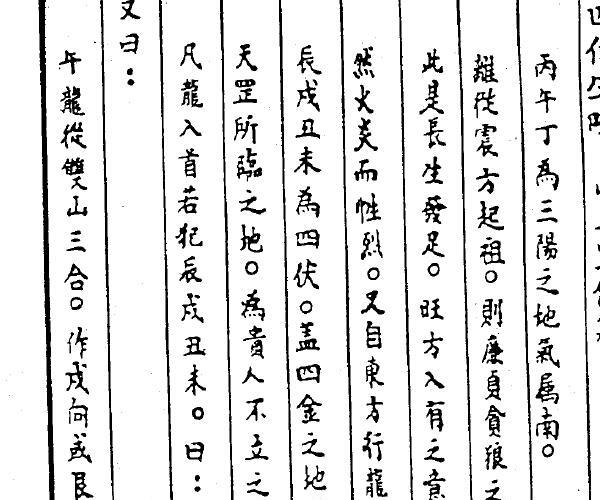 丙午丁為三陽之地氣属南。
雖從震方起祖。則廉貞貪狼之
此是長生發足。旺方入有之意
然火炎而性烈。又自東方行龍
辰戍丑未為四伏。盖四金之地
天罡所臨之地。為貴人不立之
凡龍入首若犯辰戍丑未。曰：
又曰：
午龍從雙山三合。作戍向或艮